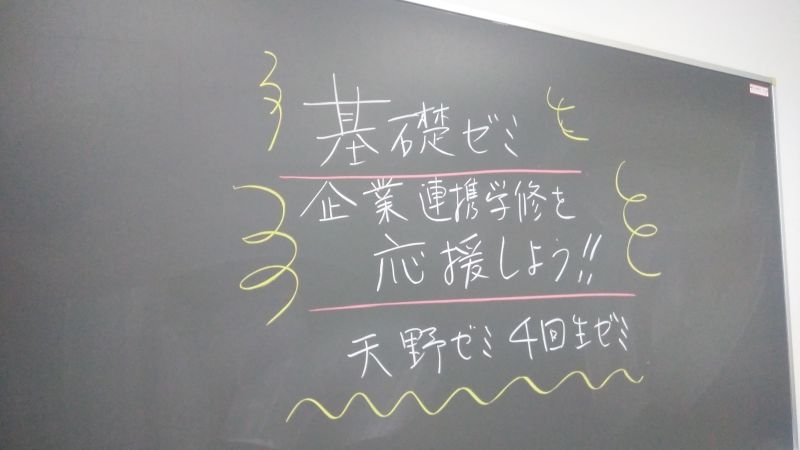 基礎ゼミ
企業連携学修を
応援しよう!!
天野ゼミ 4回生ゼミ